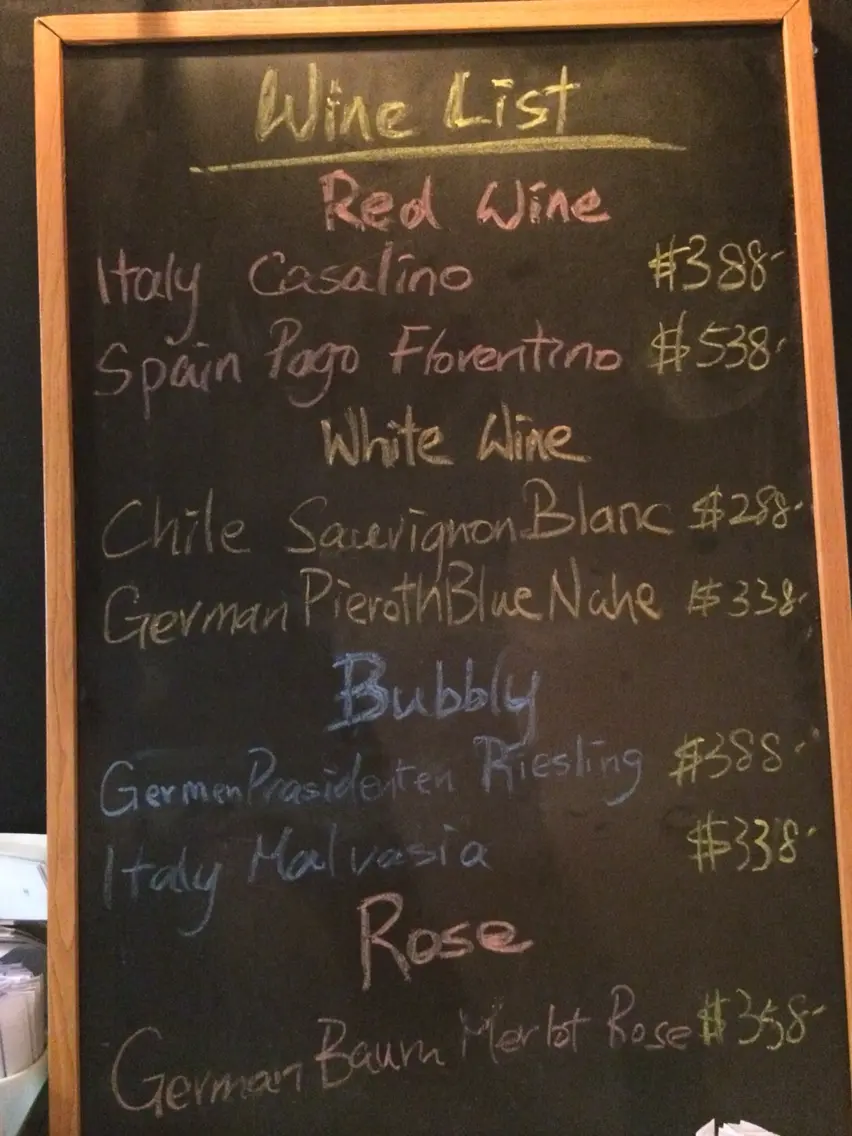 Wine List
Red Wine
Italy Casalino $388-
Spain Pago Florentino $538-
White Wine
Chile Sauvignon Blanc $288-
German Pieroth Blue Nahe $338-
Bubbly
Germen Prasidenten Riesling $388-
Italy Malvasia $338-
Rose
German Baum Merlot Rose $358-